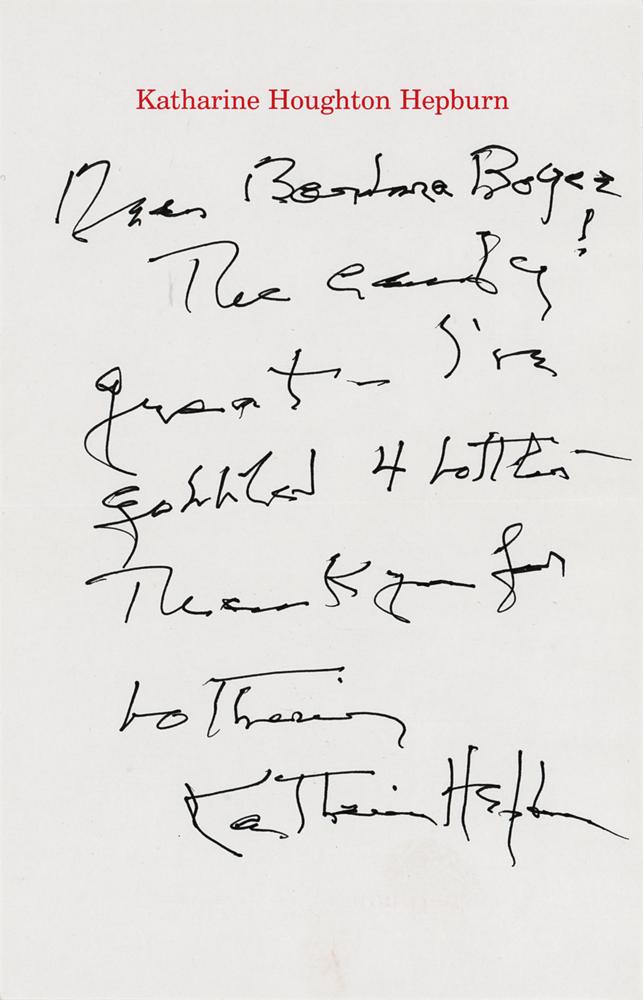 Katharine Houghton Hepburn
Dear Barbara
The candy!
great — I've
gobbled 4 bottles —
Thank you for
bothering
Katharine Hepburn